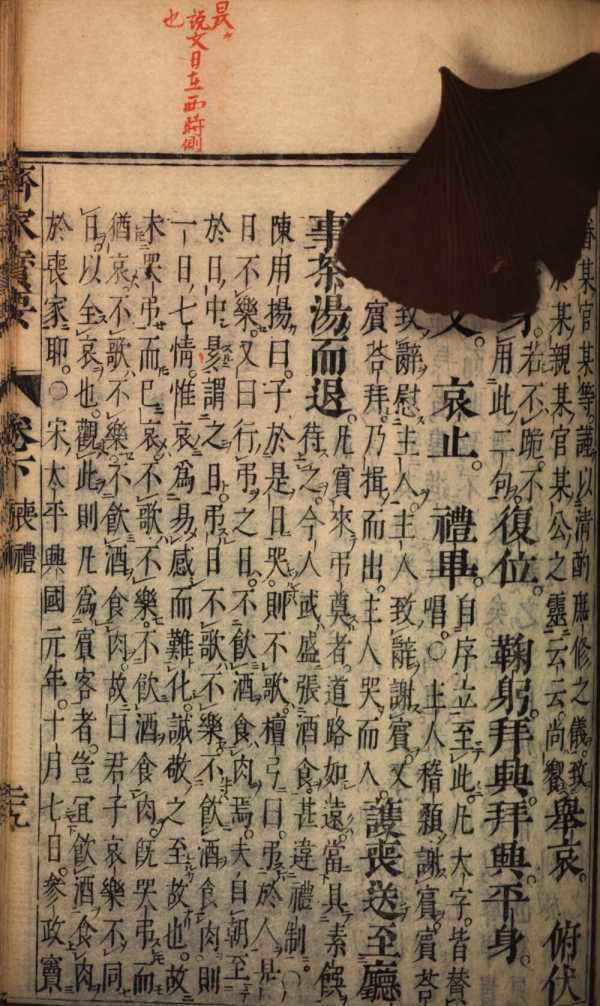 昃〃
説文日在西時側
也
某官某等謹以清酌庶修之儀。致
某親某官某公之靈云云尚饗。
舉哀。 俯伏
若不跪。不
用此二句。
復位。 鞠躬拜興拜興。平身。
哀止。 禮畢。
自序立至此。凡大字。皆贊
唱。○主人稽顙謝賓。賓荅
致辭慰主人。主人致辭謝賓。又
賓荅拜。乃揖而出。主人哭而入。
護喪送至廳
事茶湯而退。
凡賓來弔奠者。道路如遠。當具素饌
待之。今人或盛張酒食。甚違禮制。○
陳用揚曰。子於是日哭。則不歌。檀弓曰。弔於人。是
日不樂。又曰行弔之日。不飲酒食肉焉。夫自朝至
於日中昃。謂之日。弔日不歌不樂。不飲酒食肉。則
一日七情。惟哀爲易感而難化。誠敬之至故也。故
未哭弔而已。哀不歌不樂。不飲酒食肉。既哭弔而
猶哀。不歌不樂。不飲酒食肉。故曰君子哀樂不同
日。以全哀也。觀此則凡爲賓客者。豈冝飲酒食肉
於喪家耶。○宋太平興國元年。十月七日。參政竇
齊家寳要 卷下 喪禮